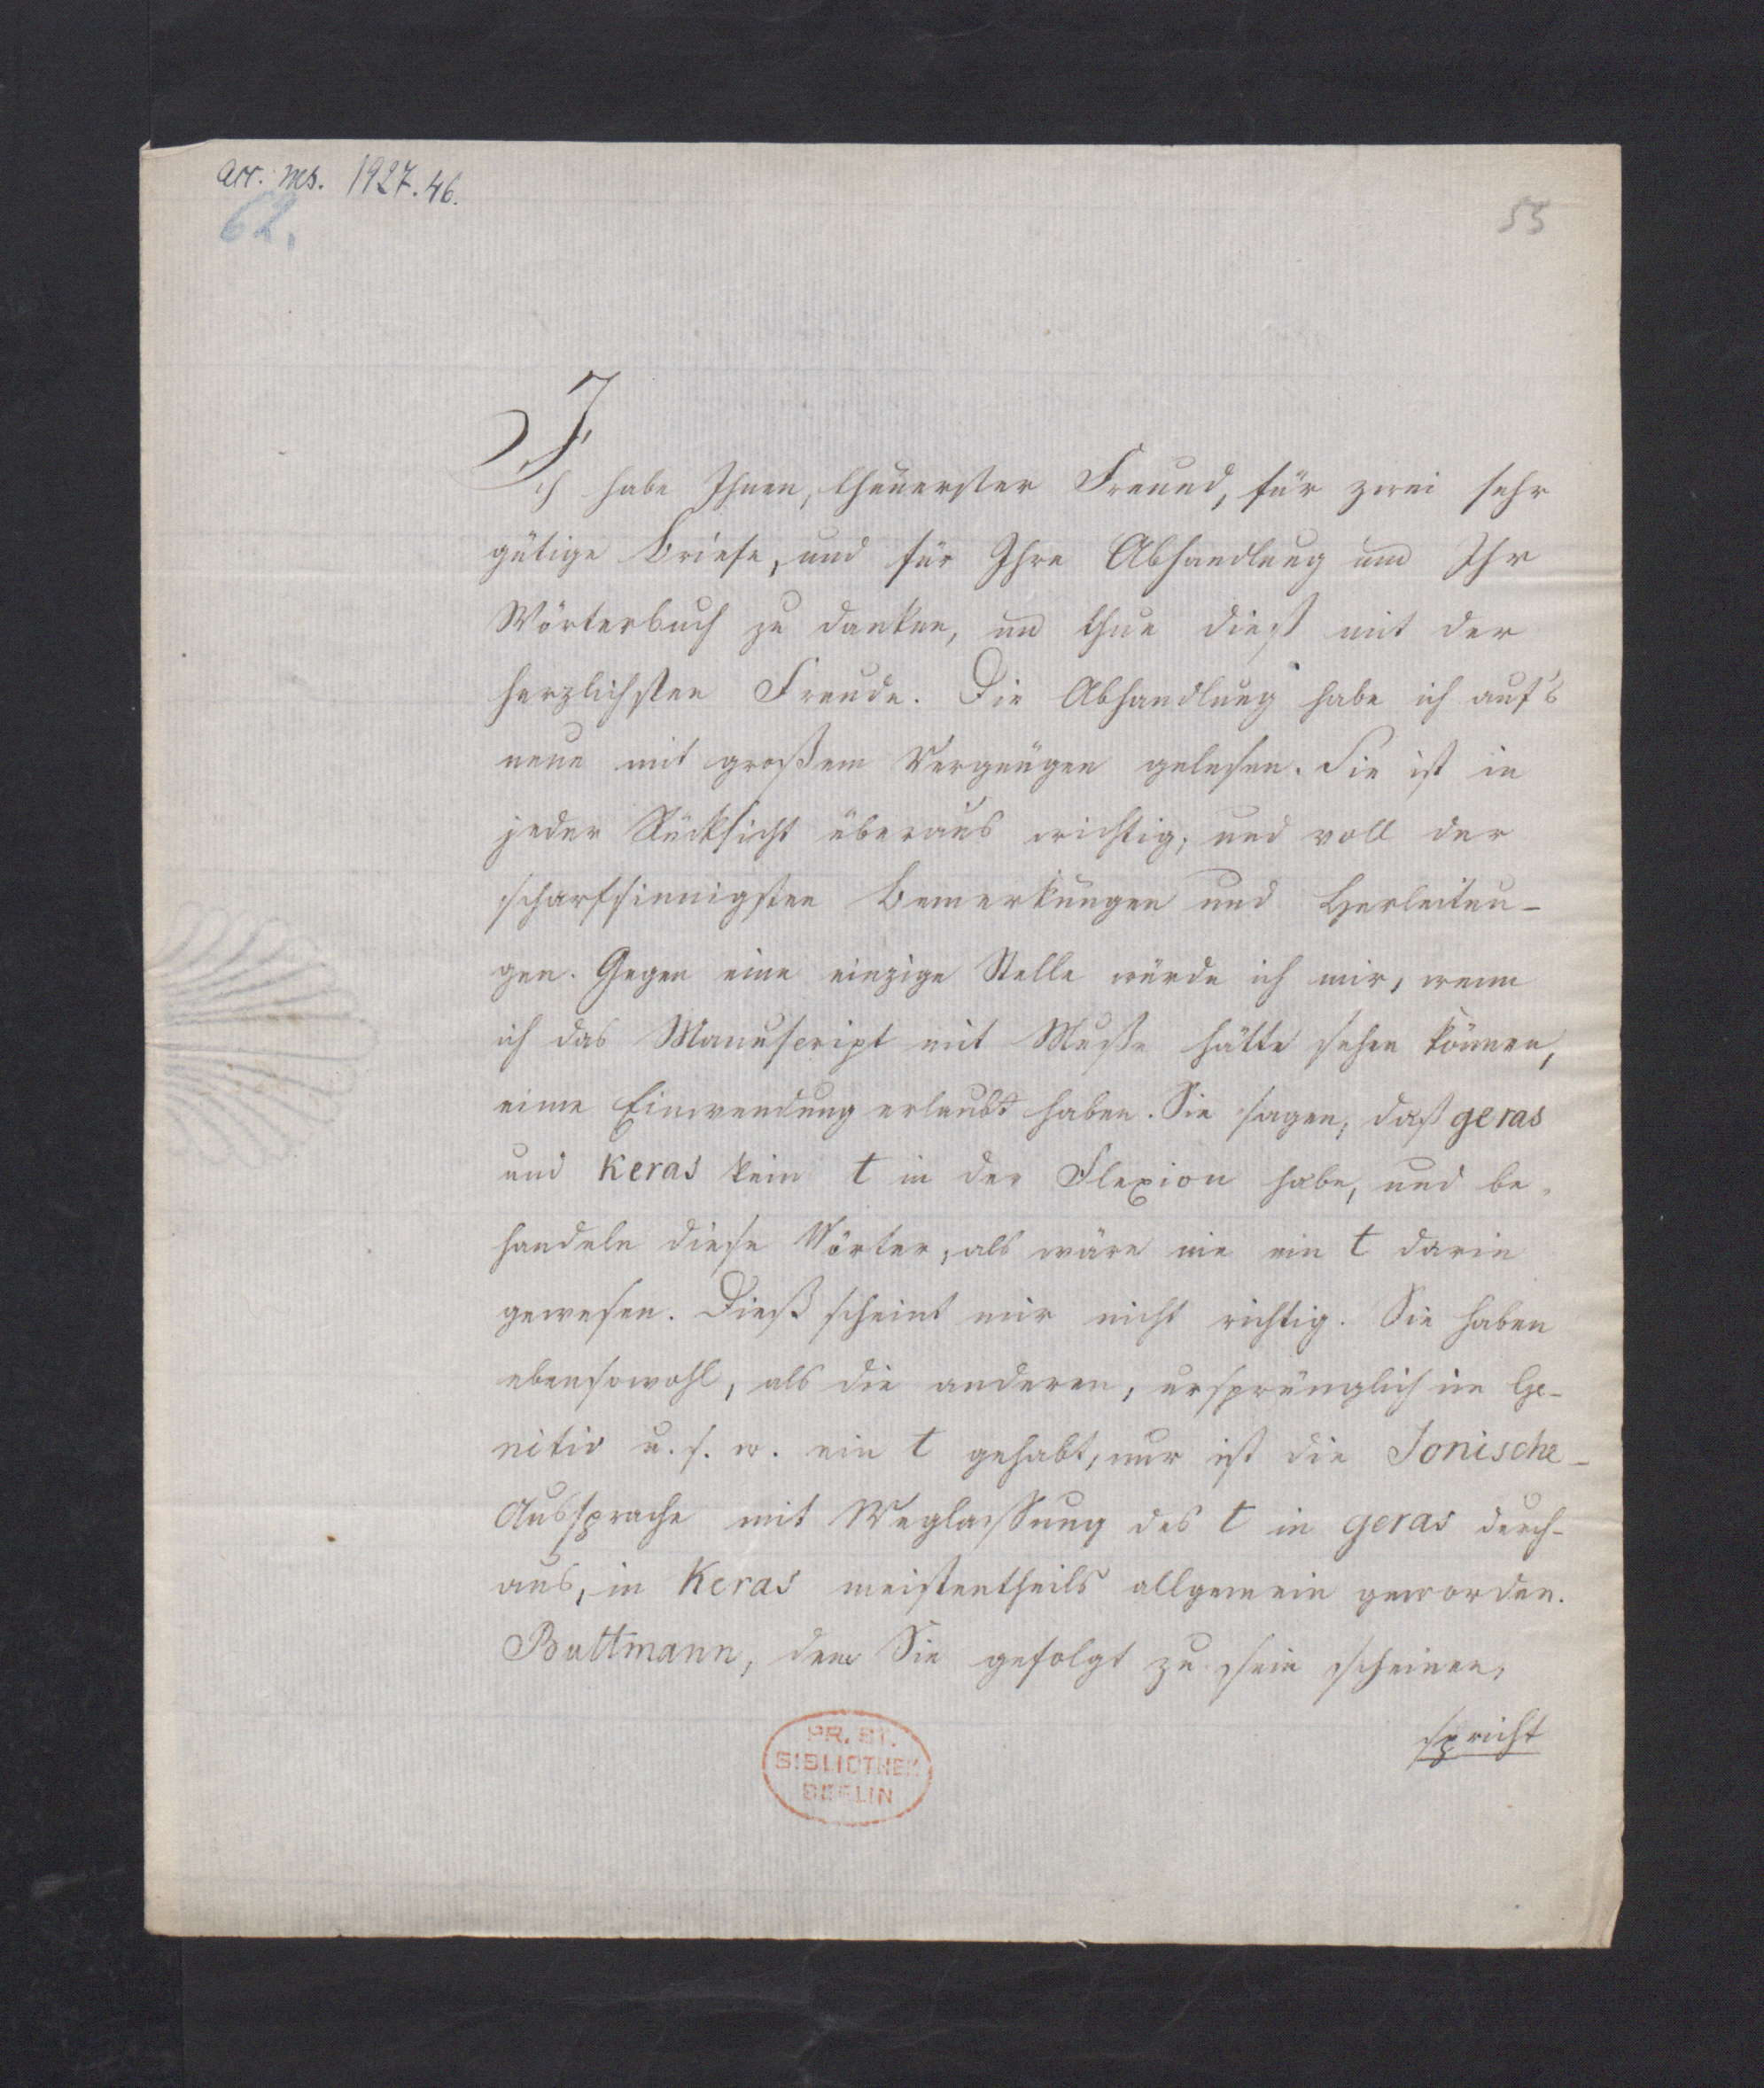 acc. ms. 1927.46.
62.
53
Ich habe Ihnen, theuerster Freund, für zwei sehr
gütige Briefe, und für Ihre Abhandlung und Ihr
Wörterbuch zu danken, und thue dieß mit der
herzlichsten Freude. Die Abhandlung habe ich auf's
neue mit großem Vergnügen gelesen. Sie ist in
jeder Rücksicht überaus wichtig, und voll der
scharfsinnigsten Bemerkungen und Herleitun-
gen. Gegen eine einzige Stelle würde ich mir, wenn
ich das Manuscript mit Muße hätte sehen können,
eine Einwendung erlaubt haben. Sie sagen, daß geras
und keras kein t in der Flexion habe, und be-
handeln diese Wörter, als wäre nie ein t darin
gewesen. Dieß scheint mir nicht richtig. Sie haben
ebensowohl, als die anderen, ursprünglich im Ge-
nitiv u. s. w. ein t gehabt, nur ist die Ionische
Aussprache mit Weglassung des t in geras durch-
aus, in keras meistentheils allgemein geworden.
Buttmann, dem Sie gefolgt zu sein scheinen,
spricht
PR. ST.
BIBLIOTHEK
BERLIN